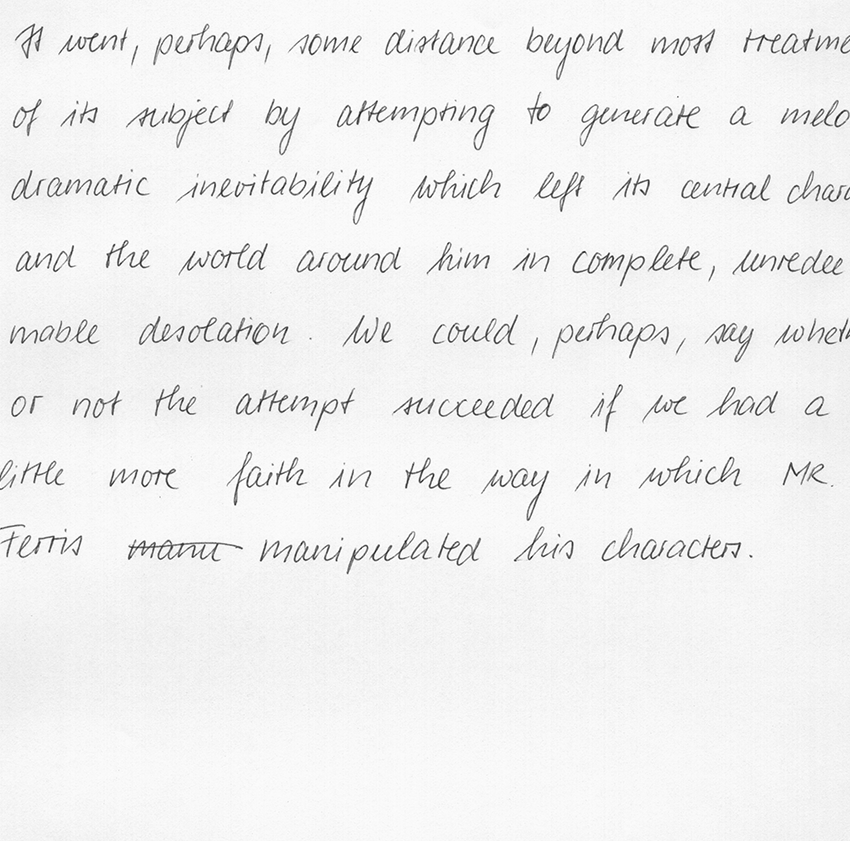 It went, perhaps, some distance beyond most treatme
of its subject by attempting to generate a melo
dramatic inevitability which left its central chara
and the world around him in complete, unredee
mable desolation. We could, perhaps, say wheth
or not the attempt succeeded if we had a
little more faith in the way in which MR.
Ferris manu manipulated his characters.